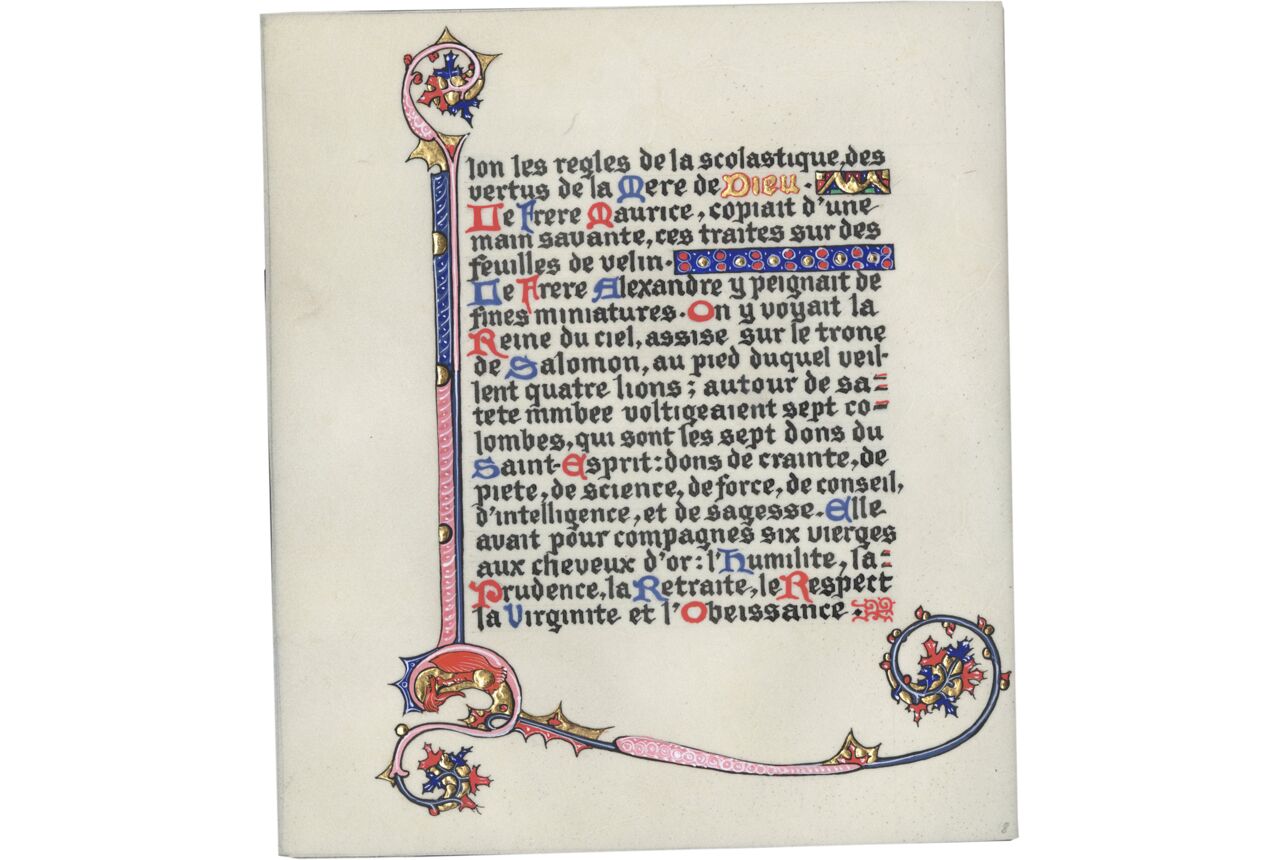 lon les regles de la scolastique, des
vertus de la Mere de Dieu.
Le Frere Maurice, copiait d'une
main savante, ces traites sur des
feuilles de velin.
Le Frere Alexandre y peignait de
fines miniatures. On y voyait la
Reine du ciel, assise sur le trone
de Salomon, au pied duquel veil-
lent quatre lions; autour de sa=
tete nimbee voltigeaient sept co=
lombes, qui sont les sept dons du
Saint-Esprit: dons de crainte, de
piete, de science, de force, de conseil,
d'intelligence, et de sagesse. Elle
avait pour compagnes six vierges
aux cheveux d'or: l'Humilite, la=
Prudence, la Retraite, le Respect
la Virginite et l'Obeissance.
8